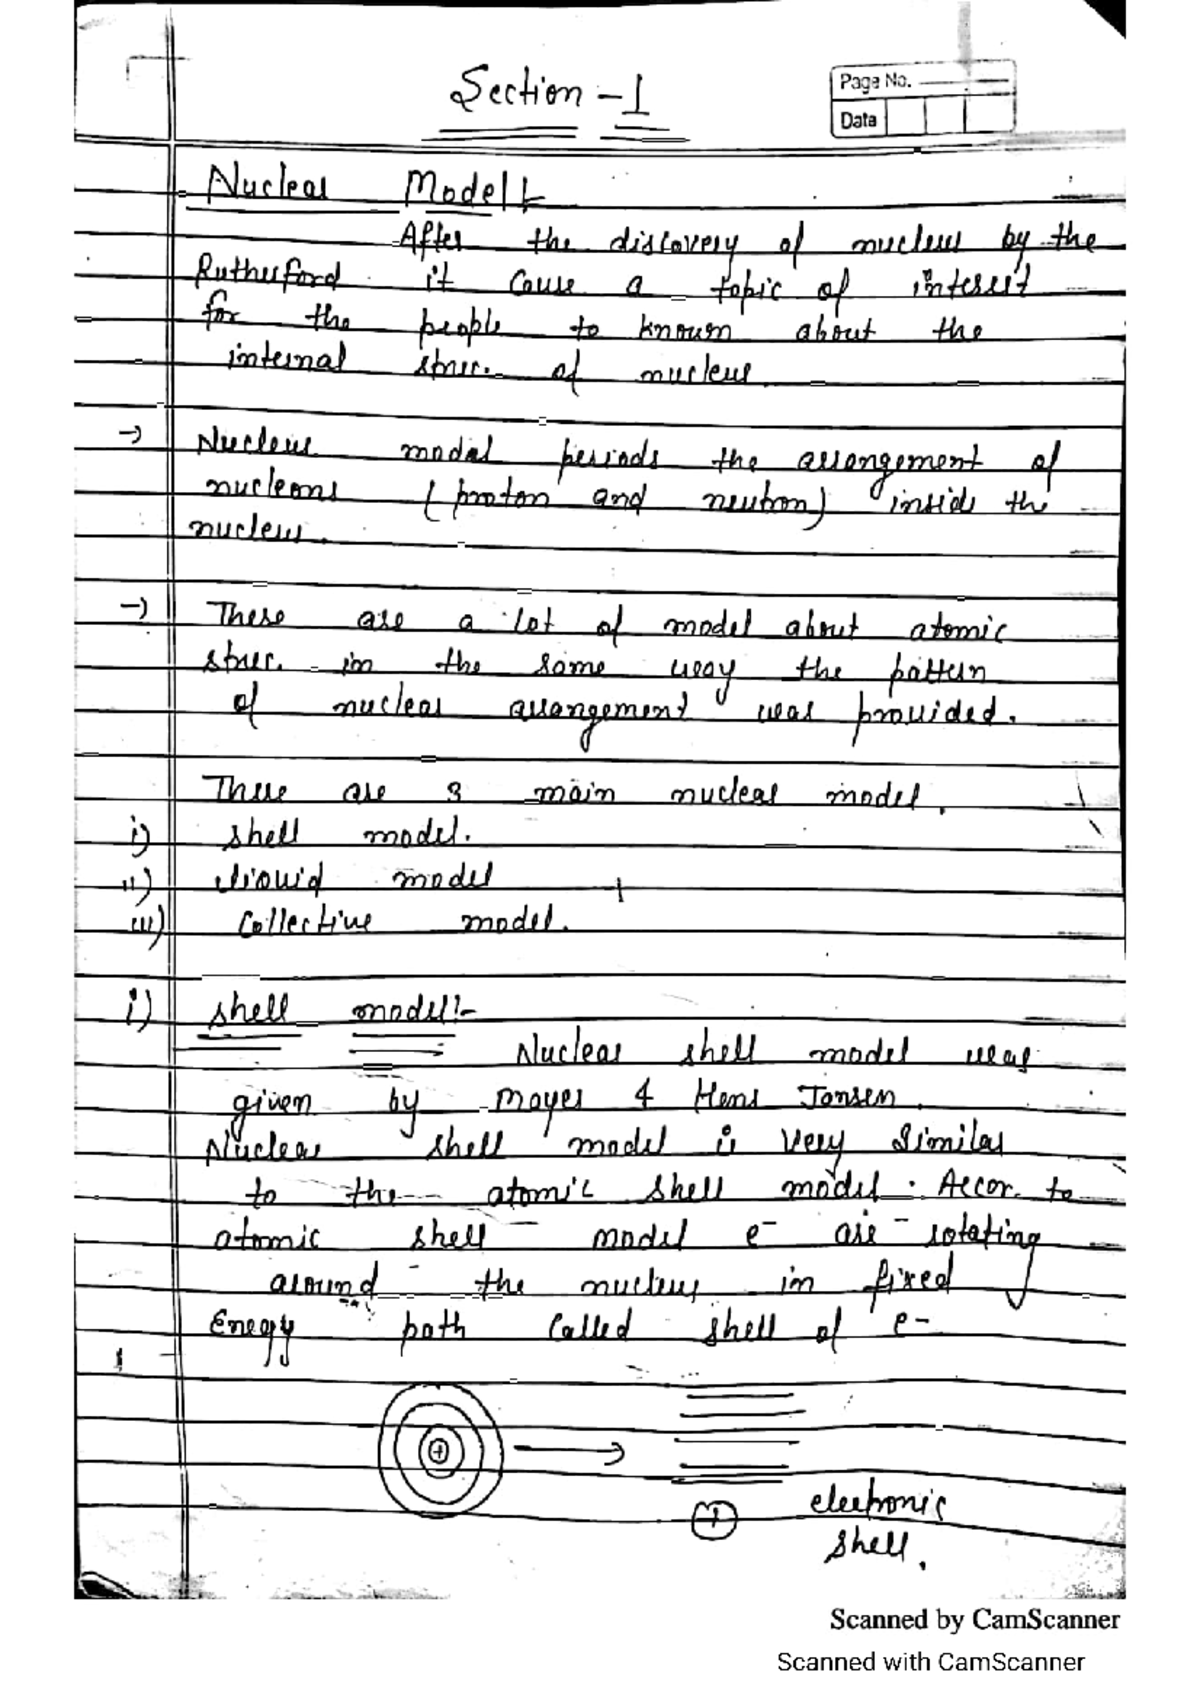 Section - 1
Page No.
Data
Nuclear Model :-
After the discovery of nucleus by the
Rutherford it cause a topic of interest
for the people to known about the
internal struc. of nucleus.
→ Nucleus model periods the arrangement of
nucleons (proton and neutron) inside the
nucleus.
→ These are a lot of model about atomic
struc. in the same way the pattern
of nuclear arrangement was provided.
There are 3 main nuclear model.
i) shell model.
ii) liquid model
iii) Collective model.
i) shell model:-
Nuclear shell model was
given by Mayer & Hens Jansen.
Nuclear shell model is very similar
to the atomic shell model. Accor. to
atomic shell model e- are rotating
around the nucleus in fixed
Enegy path called shell of e-
+
+
electronic
shell.
Scanned by CamScanner
Scanned with CamScanner